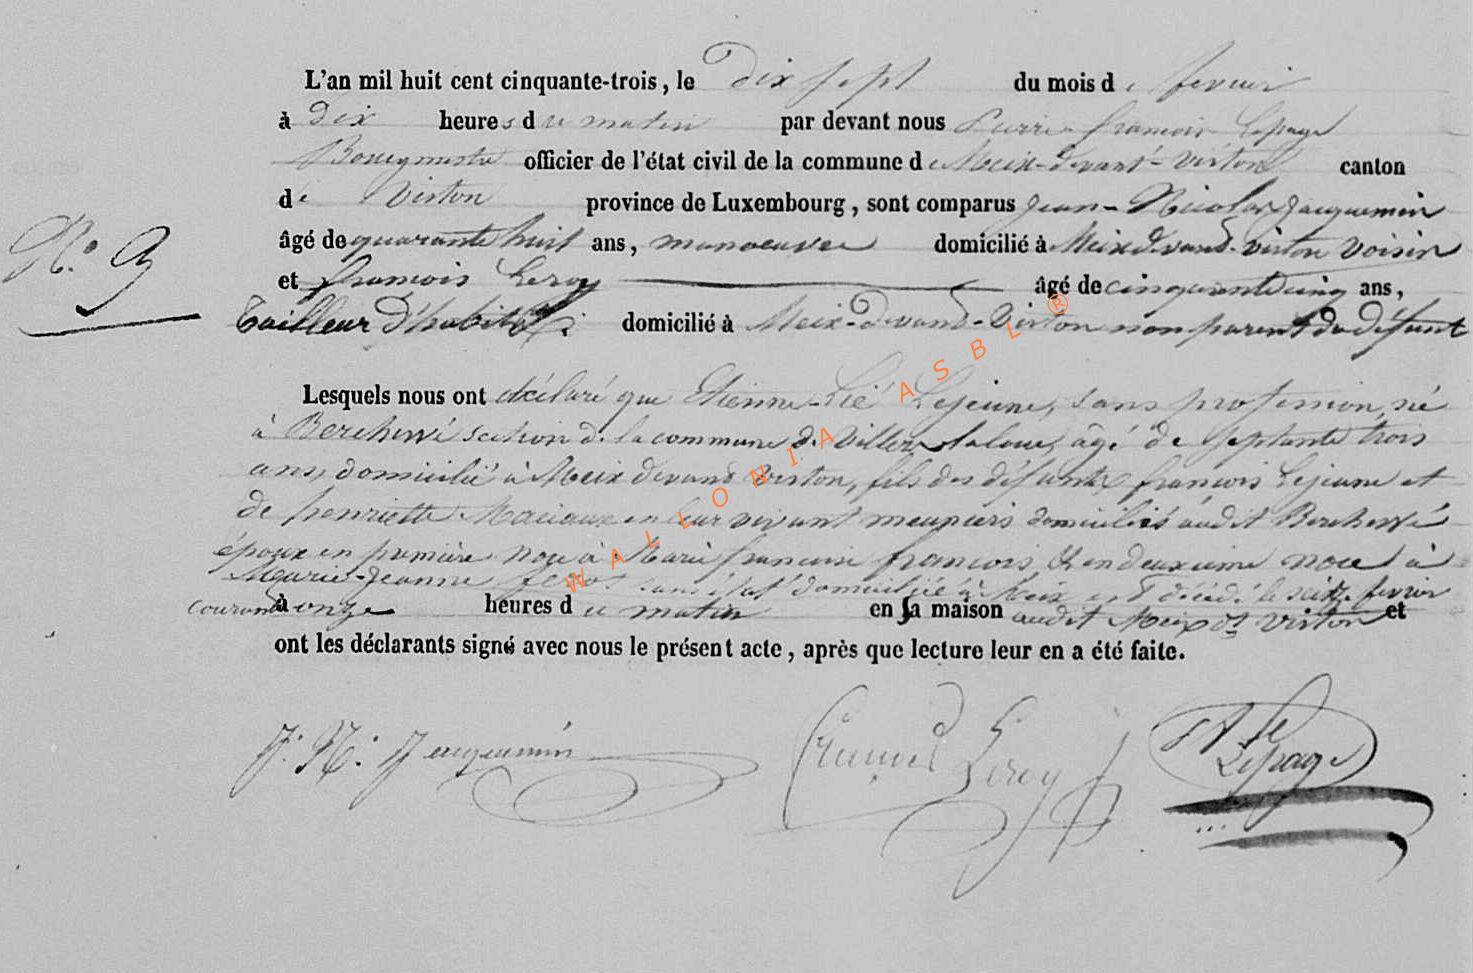 L'an mil huit cent cinquante-trois, le Dix sept du mois de fevrier
à Dix heures du matin par devant nous Pierre françois Lepage
Bourgmestre officier de l'état civil de la commune de Meix-devant-virton canton
de Virton province de Luxembourg, sont comparus Jean-Nicolas Jacquemin
N.° 9
âgé de quarante huit ans, manoeuvre domicilié à Meix devant-virton voisin
et françois Leroy âgé de cinquante cinq ans,
Tailleur d'habits domicilié à Meix-devant-Virton non parent du défunt
Lesquels nous ont déclaré que Etienne-Lié Lejeune, sans profession, né
à Bercheux section de la commune de Villers laloue, âgé de septante trois
ans, domicilié à Meix devant Virton, fils des défunts françois Lejeune et
de henriette en leur vivant meuniers domiciliés audit
époux en première noce à Marie françoise françois & en deuxieme noce à
Marie-Jeanne sans état domiciliée à Meix est décédé le seize fevrier
courant à onze heures du matin en sa maison audit Meix dt virton et
ont les déclarants signé avec nous le présent acte, après que lecture leur en a été faite.
J. N. Jacquemin françois Leroy Lepage
WALLONIA ASBL®